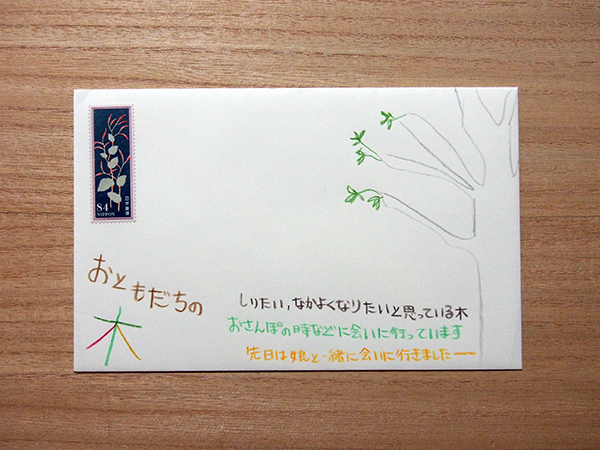 84
NIPPON
日本郵便
おともだちの
木
しりたい,なかよくなりたいと思っている木
おさんぽの時などに会いに行っています
先日は娘と一緒に会いに行きましたー